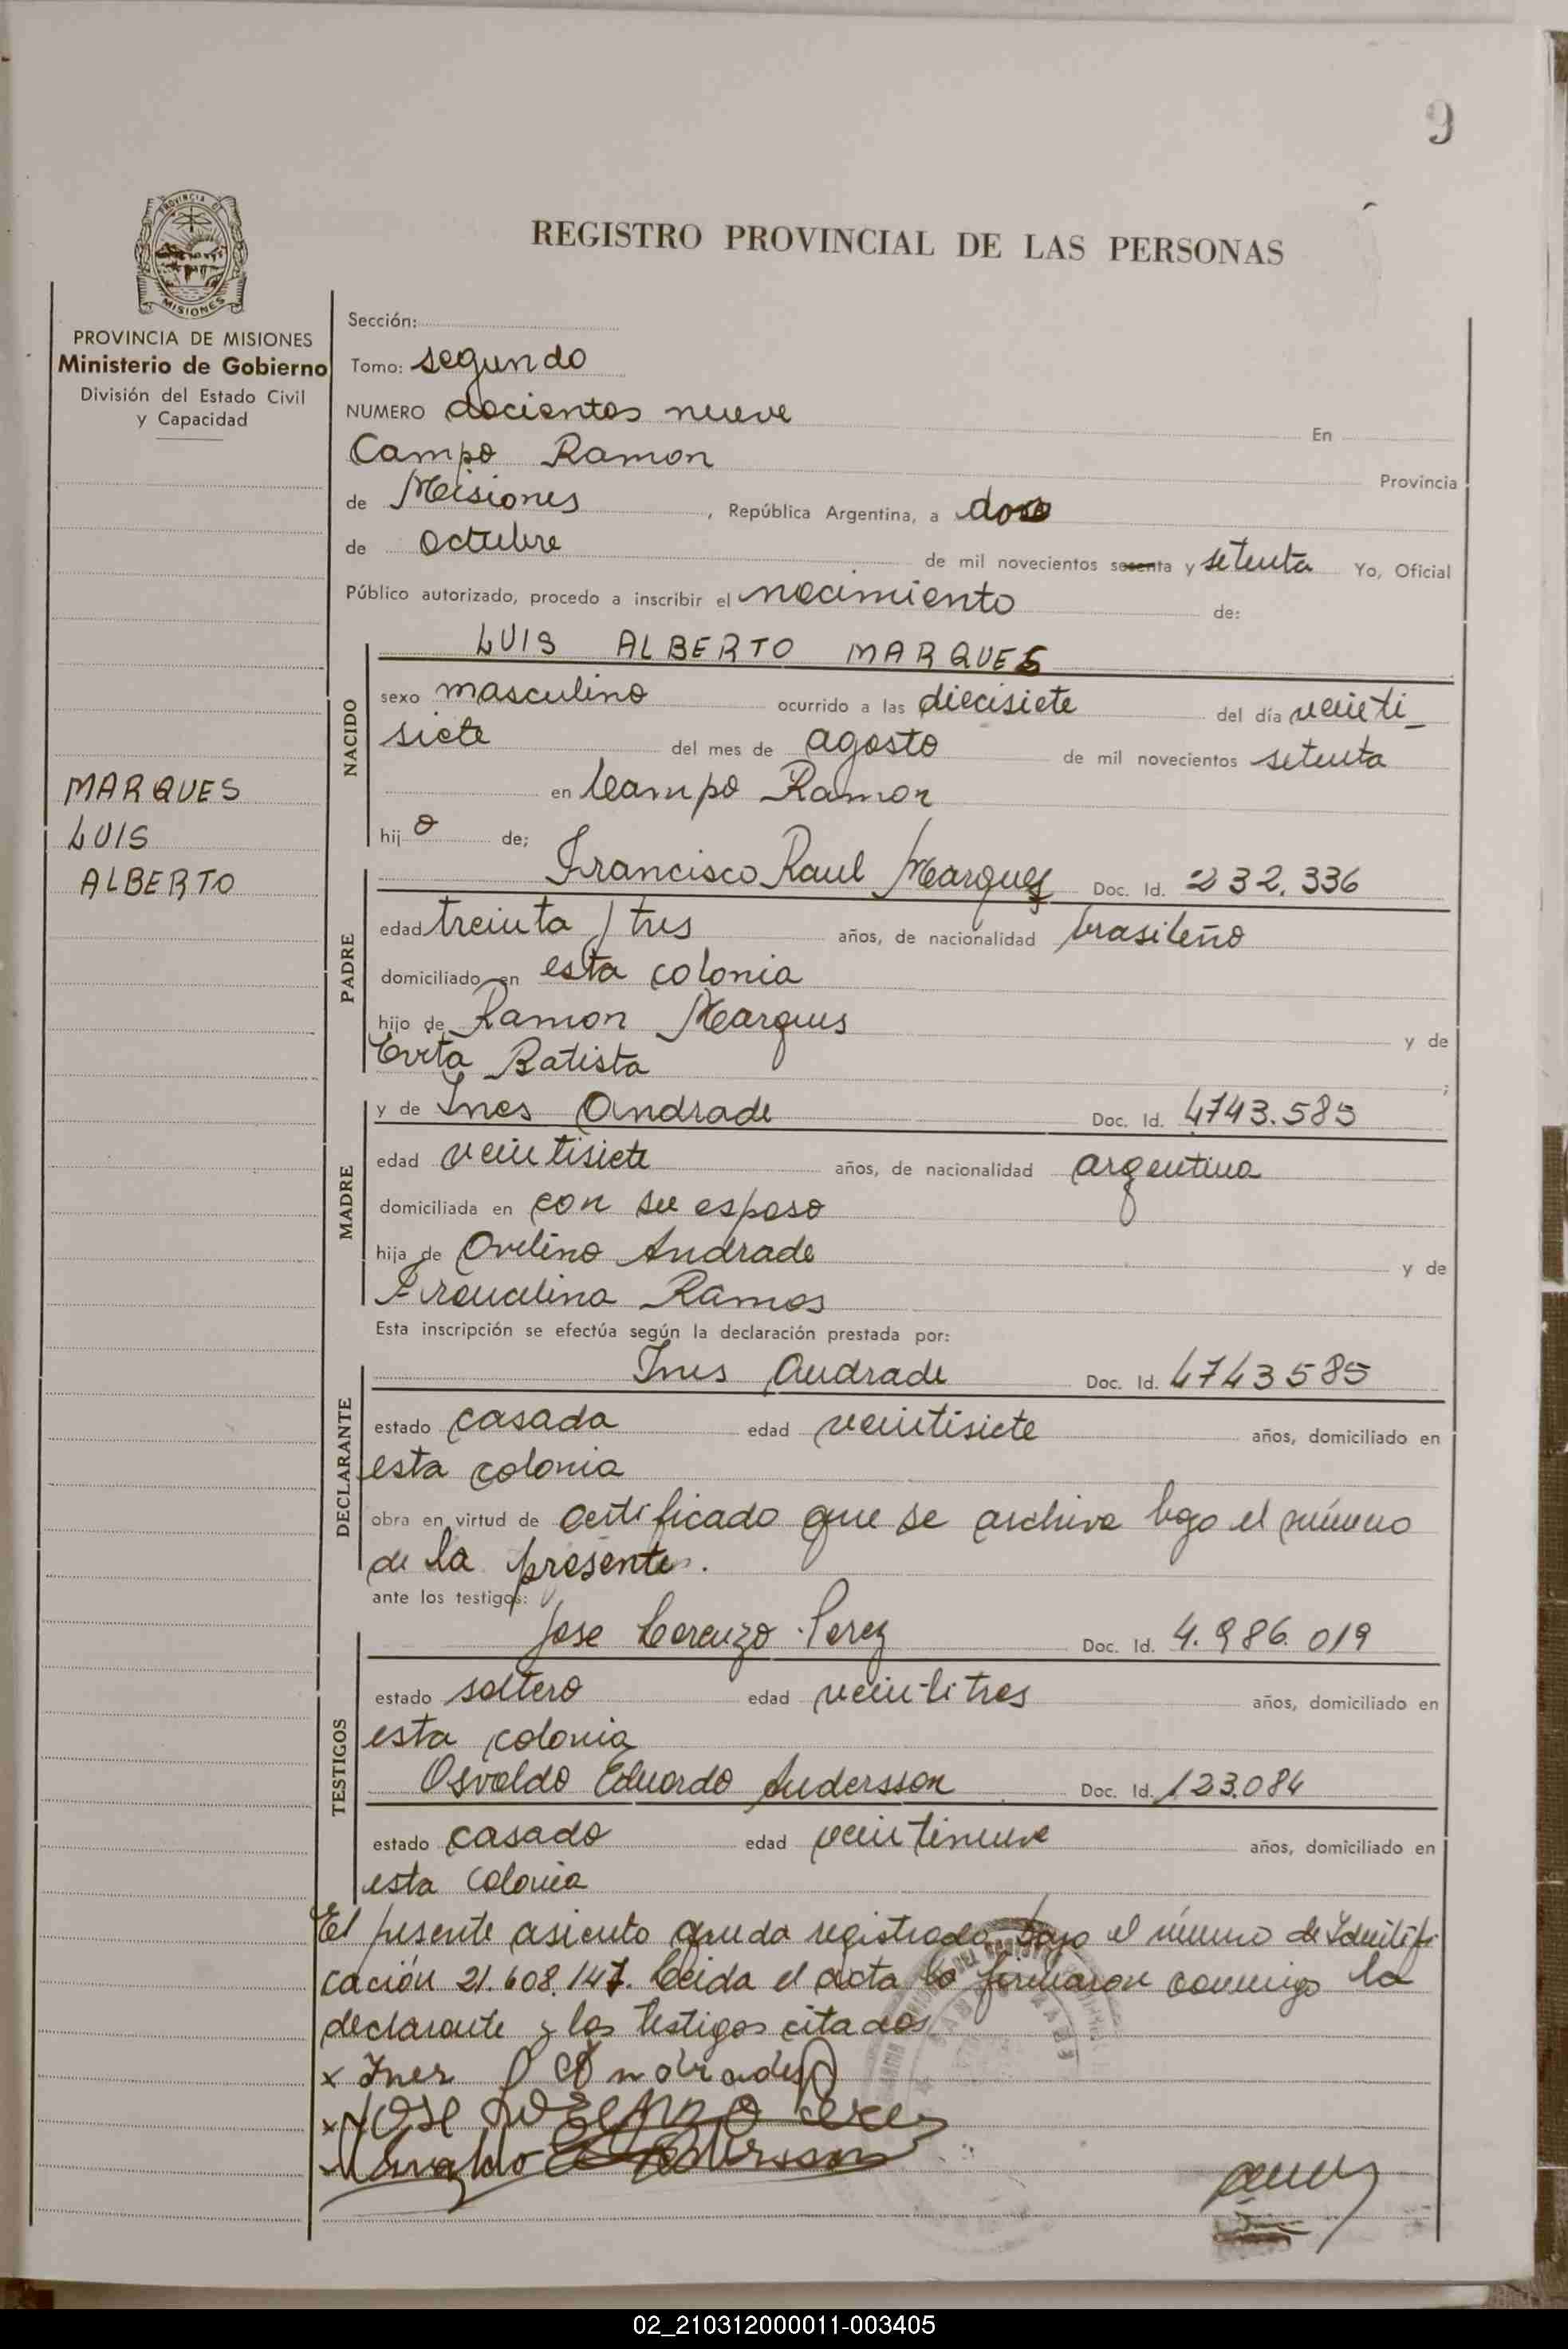 9
REGISTRO PROVINCIAL DE LAS PERSONAS
PROVINCIA DE MISIONES
Ministerio de Gobierno
División del Estado Civil
y Capacidad
MARQUES
LUIS
ALBERTO
Sección:
Tomo: segundo
NUMERO docientos nueve En
Campo Ramon Provincia
de Misiones , República Argentina, a dos
de octubre de mil novecientos sesenta y setenta Yo, Oficial
Público autorizado, procedo a inscribir el nacimiento de:
NACIDO
LUIS ALBERTO MARQUES
sexo masculino ocurrido a las diecisiete del día veinti_
siete del mes de agosto de mil novecientos setenta
en Campo Ramon
hijo de;
PADRE
Francisco Raul Marques Doc. Id. 232.336
edad treinta y tres años, de nacionalidad brasileño
domiciliado en esta colonia
hijo de Ramon Marques y de
Batista ;
MADRE
y de Ines Andrade Doc. Id. 4743.585
edad veintisiete años, de nacionalidad argentina
domiciliada en con su esposo
hija de Ovelino Andrade y de
Ramos
Esta inscripción se efectúa según la declaración prestada por:
DECLARANTE
Ines Andrade Doc. Id. 4743585
estado casada edad veintisiete años, domiciliado en
esta colonia
obra en virtud de certificado que se archiva bajo el número
de la presente.
ante los testigos:
TESTIGOS
Jose Lorenzo Perez Doc. Id. 4.986.019
estado soltero edad veintitres años, domiciliado en
esta colonia
Osvaldo Eduardo Andersson Doc. Id. 123.084
estado casado edad veintinueve años, domiciliado en
esta colonia
El presente asiento queda registrado bajo el número de Identifi
cación 21.608.147. Leida el acta la firmaron conmigo la
declarante y los testigos citados
x Ines Andrade
x Jose Lorenzo Perez
x Osvaldo E Andersson
02_210312000011-003405